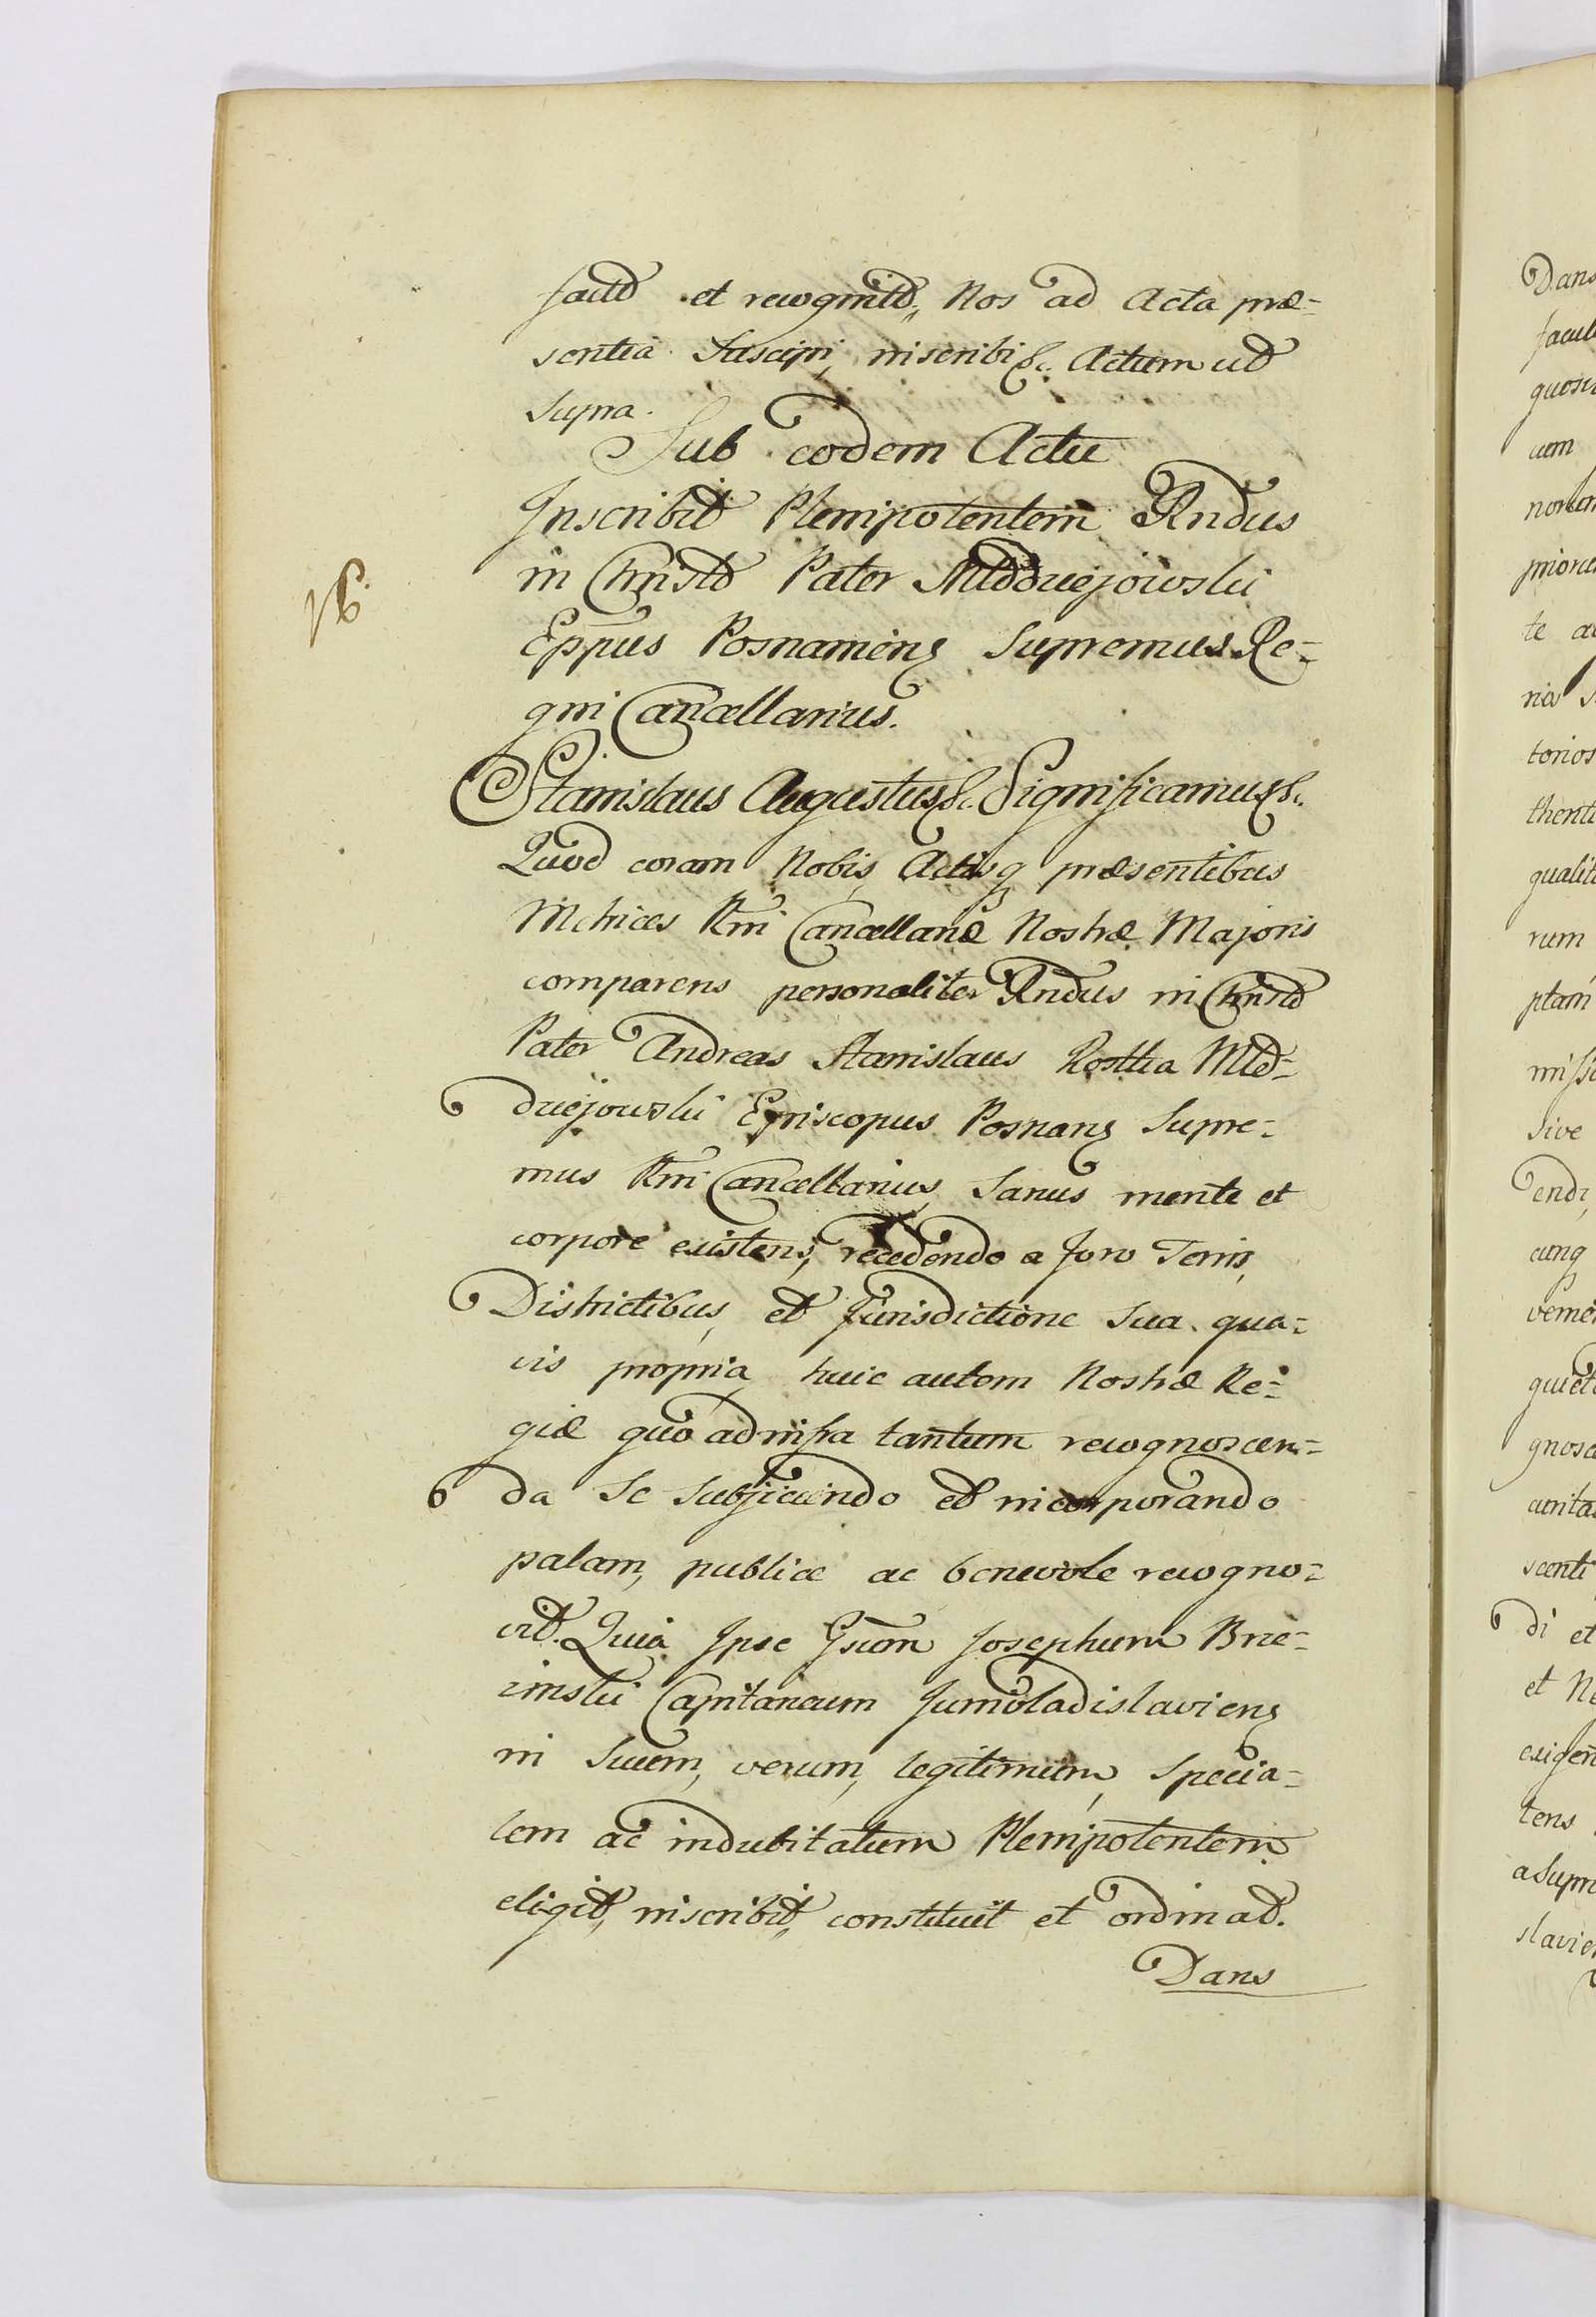 facto et recognito, Nos ad Acta præ=
sentia Suscipi, inscribi &c. Actum ut
supra.
Sub eodem Actu
Inscribit Plenipotentem Rndus
in Christo Pater Młodziejowski
Eppus Posnaniens Supremus Re=
gni Cancellarius.
Stanislaus Augustus &c. Significamus &c.
Quod coram Nobis, Actisq præsentibus
Metrices Rni Cancellariæ Nostræ Majoris
comparens personaliter Rndus in Christo
Pater Andreas Stanislaus Kostka Mło=
dziejowski Episcopus Posnans Supre=
mus Rni Cancellarius, Sanus mente et
corpore existens, recedendo a foro Terris,
Districtibus, et Jurisdictione sua qua=
vis propria, huic autem Nostræ Re=
giæ quo ad infra tantum recognoscen=
da Se subjiciendo et incorporando
palam, publice ac benevole recogno=
vit. Quia Ipse Gsum Josephum Brze=
zinski Capitaneum Juniwladislaviens
in Suum, verum, legitimum, specia=
lem ac indubitatum Plenipotentem
eligit, inscribit, constituit et ordinat.
Dans
Dans
quosv
cum
te a
torios
thenti
rum
ptam
sive
endi,
cunq
gnosc
scenti
di et
tens
a Supr